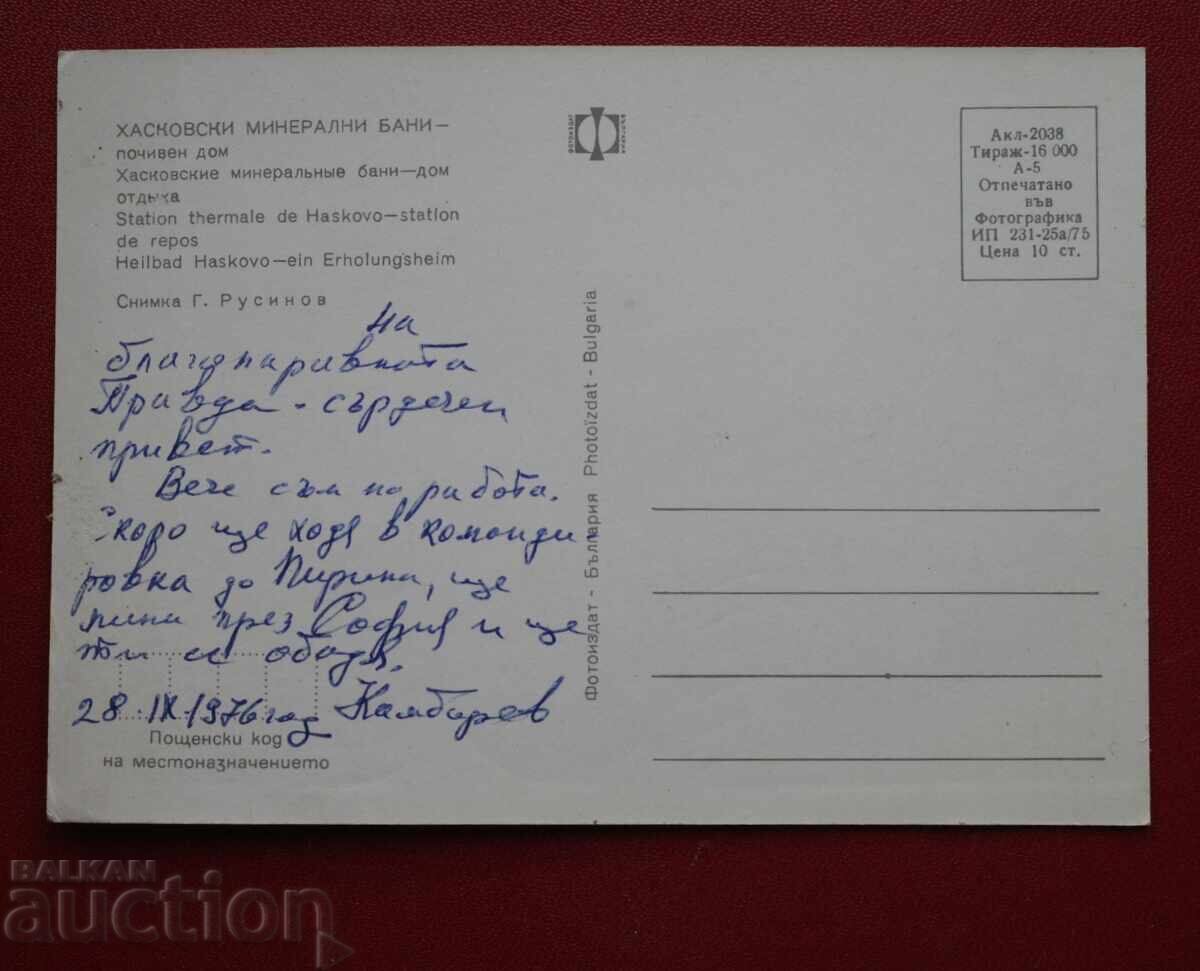 ХАСКОВСКИ МИНЕРАЛНИ БАНИ—
почивен дом
Хасковские минеральные бани—дом
отдыха
Station thermale de Haskovo—station
de repos
Heilbad Haskovo—ein Erholungsheim
Снимка Г. Русинов
ФОТОИЗДАТ
БЪЛГАРИЯ
Акл-2038
Тираж-16 000
А-5
Отпечатано
във
Фотографика
ИП 231-25а/75
Цена 10 ст.
на
Правда - сърдечен
привет.
Вече съм на работа.
Скоро ще ходя в команди-
ровка до Пирина, ще
мина през София и ще
ти се обадя.
28.IX.1976 год Камбурев
Пощенски код
на местоназначението
Фотоиздат - България Photoizdat - Bulgaria
BALKAN
auction